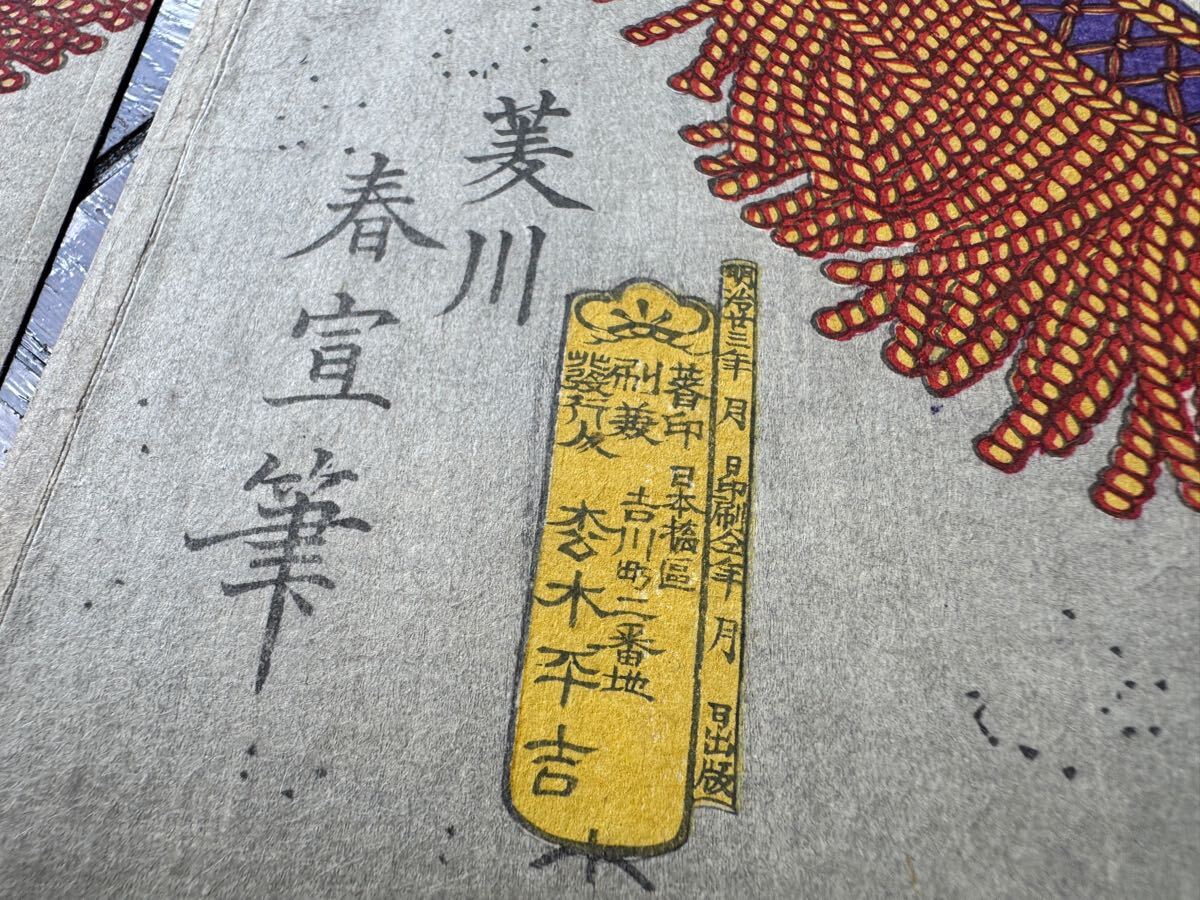 明治廿三年 月 日印刷仝年 月 日出版
著印 日本橋區
刷兼 吉川町二番地
發行人 枩木平吉
菱川
春宣筆